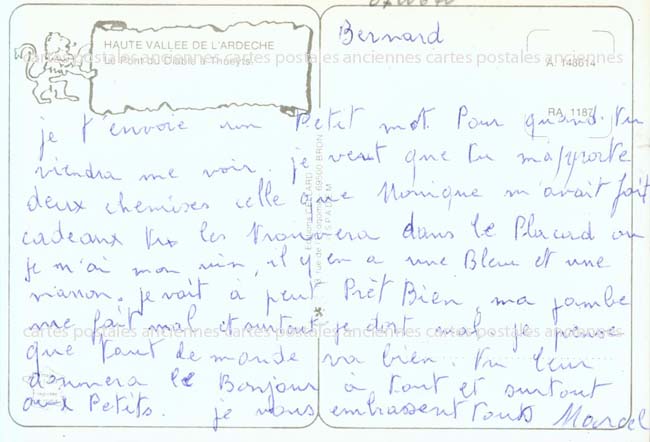 HAUTE VALLEE DE L'ARDECHE
Le Pont du Diable à Thueyts
A. 148614
RA 1187
cartes postales anciennes cartes postales anciennes cartes postales anciennes
Bernard
je t'envoie un Petit mot Pour quand tu
viendra me voir. je veut que tu m'apporte
deux chemises celle que Monique m'avait fait
cadeaux tu les trouvera dans le Placard ou
je m'ai mon vin, il y en a une Bleu et une
marron. je vait à peut Prêt Bien, ma jambe
me fait mal et surtout je dort mal je pense
que tout de monde va bien. tu leur
donnera le Bonjour à tout et surtout
aux Petits. je vous embrassent tous Marcel
cartes postales anciennes cartes postales anciennes cartes postales anciennes
69500 BRON